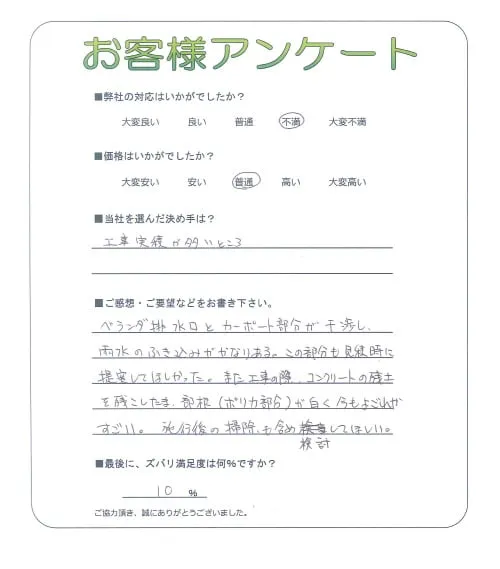 お客様アンケート
■弊社の対応はいかがでしたか？
大変良い 良い 普通 不満 大変不満
■価格はいかがでしたか？
大変安い 安い 普通 高い 大変高い
■当社を選んだ決め手は？
工事実績が多いところ
■ご感想・ご要望などをお書き下さい。
ベランダ排水口とカーポート部分が干渉し、
雨水のふき込みがかなりある。この部分も見積時に
提案してほしかった。また工事の際、コンクリートの残土
を残こしたま、部根（ポリカ部分）が白く今もよごれが
すごい。施行後の掃除も含め してほしい。
検討
■最後に、ズバリ満足度は何%ですか？
10 %
ご協力頂き、誠にありがとうございました。